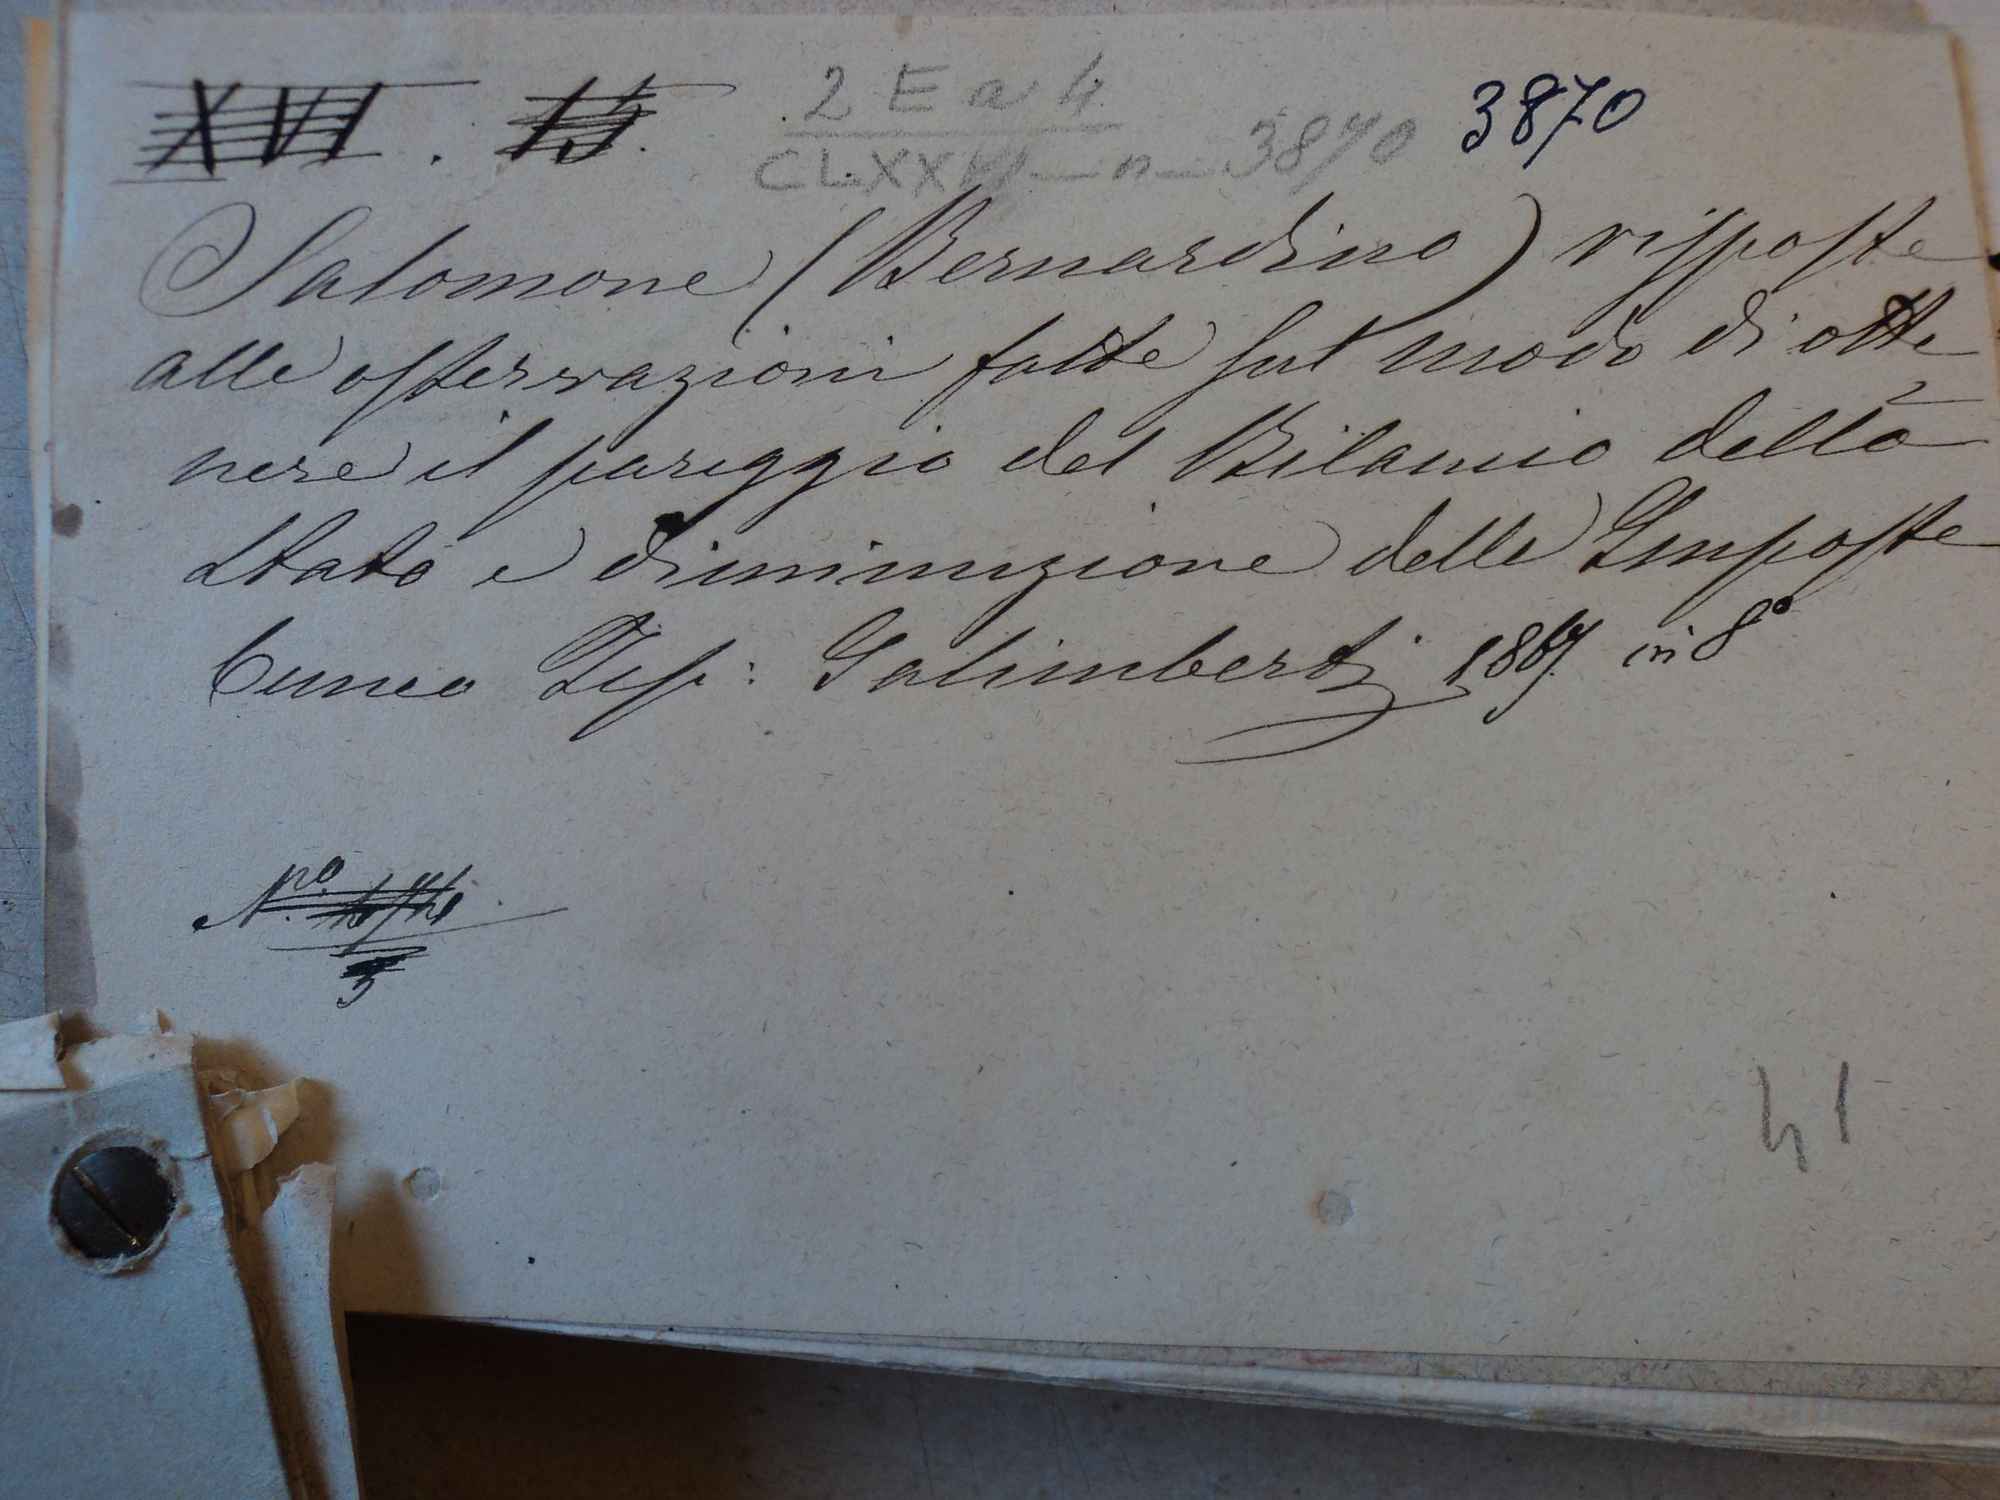 XVI . 15. 2 E a 4 3870
CLXXVI n 3870
Salomone (Bernardino) risposte
alle osservazioni fatte sul modo di otte
nere il pareggio del Bilancio dello
Stato e diminuzione delle Imposte
Cuneo Tip: Galimberti 1867. in 8°
N.ro
3
41